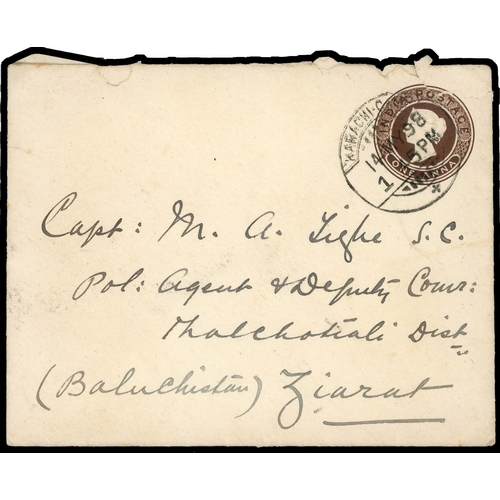 INDIA POSTAGE
ONE ANNA
KARACHI-G
14 MY 98
5 PM
1
Capt: M. A. Tighe S.C.
Pol: Agent & Deputy Comr:
Thalchotiali Dist
(Baluchistan) Ziarat